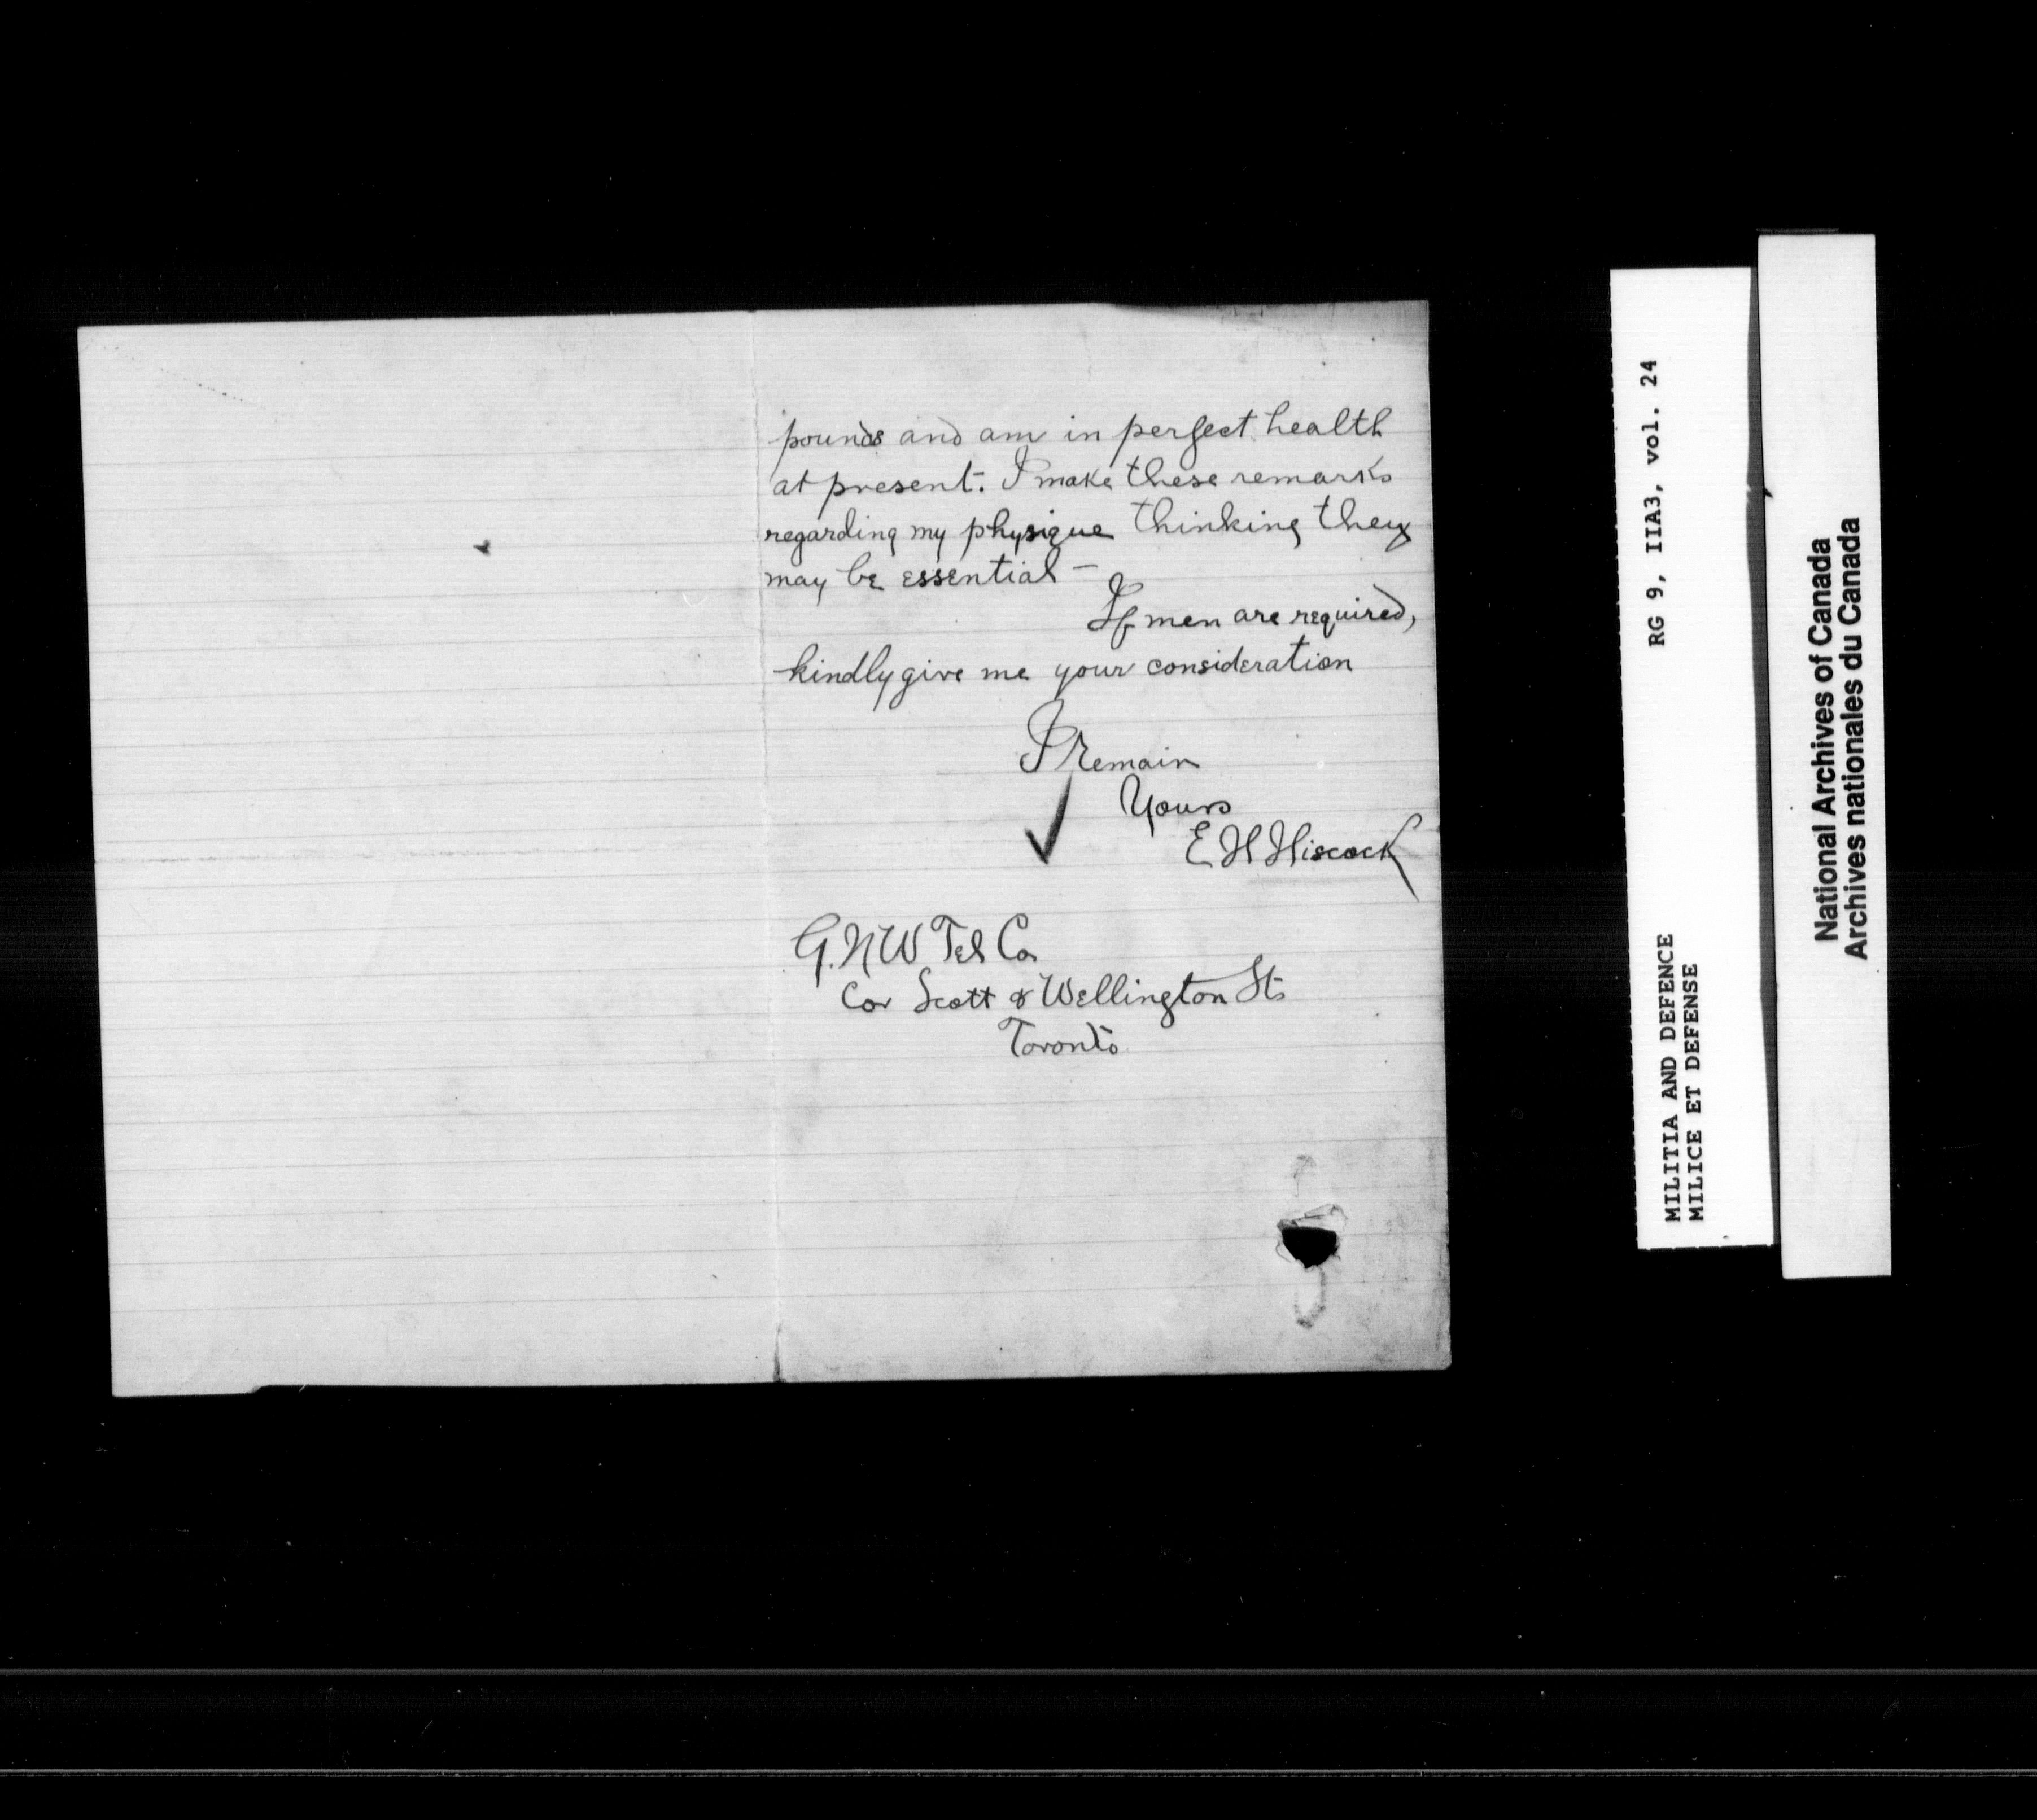 pounds and am in perfect health
at present. I make these remarks
regarding my physique thinking they
may be essential —
If men are required,
kindly give me your consideration
I Remain
Yours
E H Hiscock
G. N W Tel Co.
Cor Scott & Wellington Sts
Toronto
RG 9, IIA3, vol. 24
MILITIA AND DEFENCE
MILICE ET DEFENSE
National Archives of Canada
Archives nationales du Canada